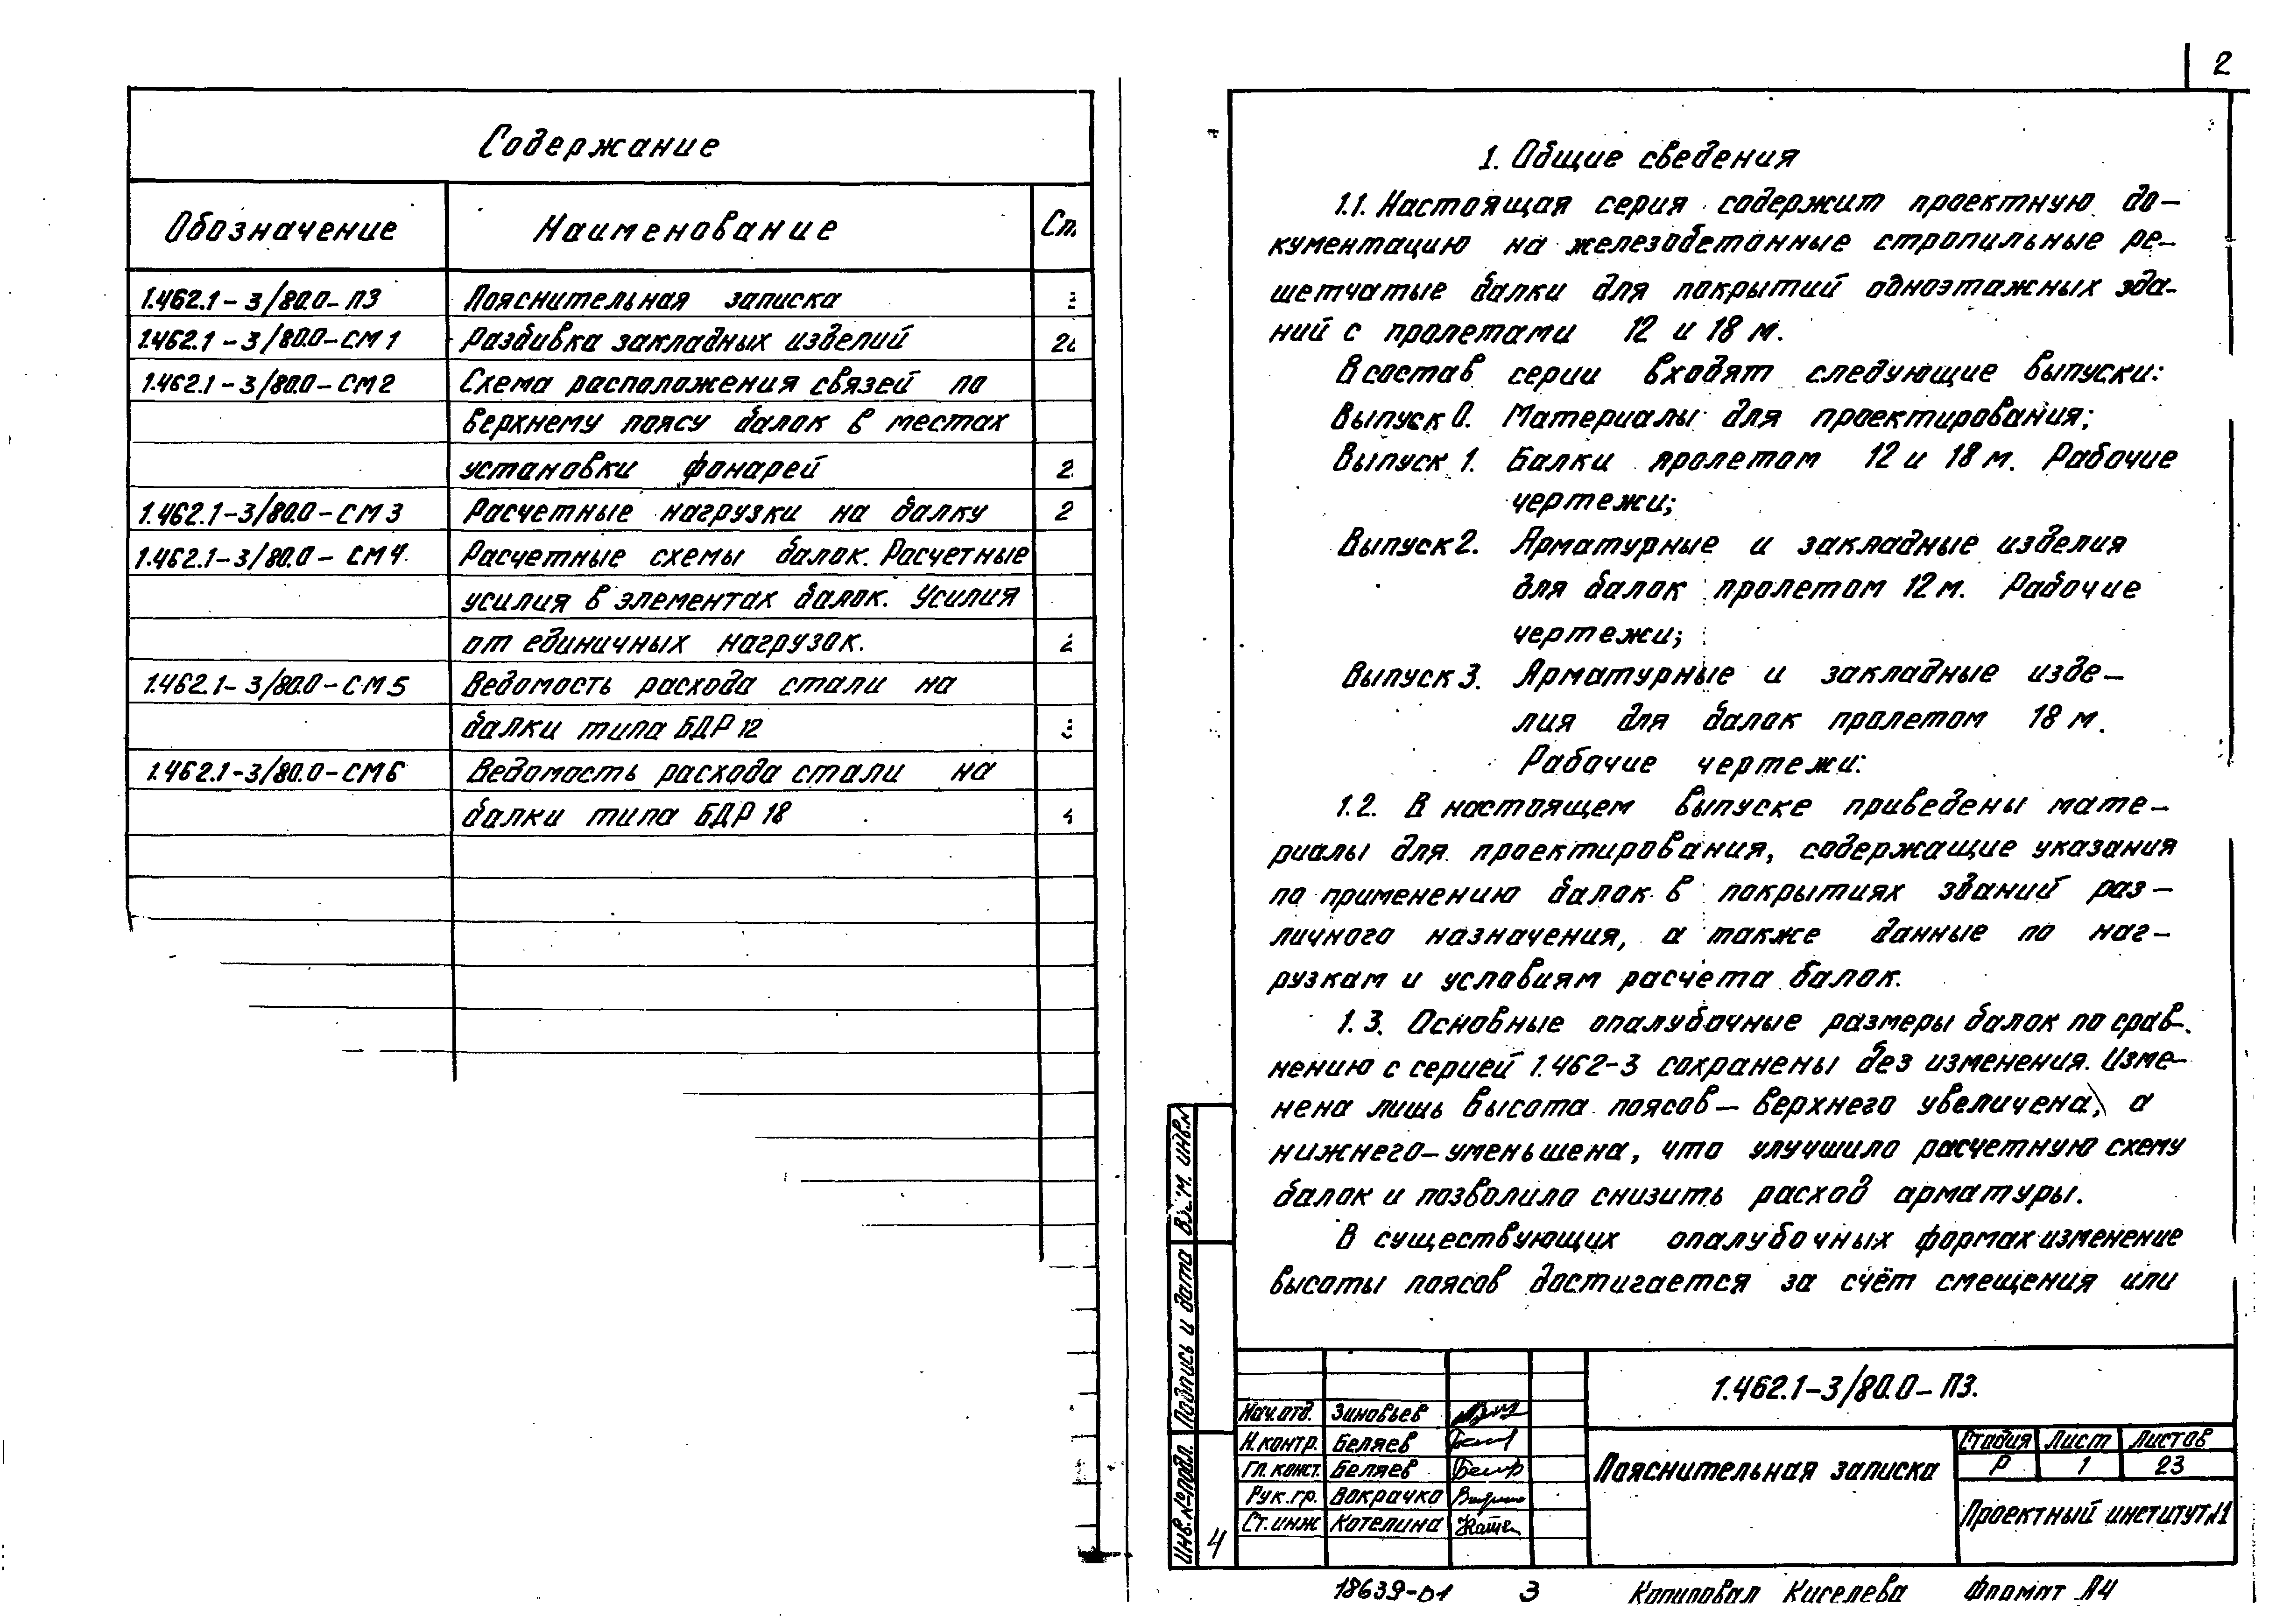 Содержание
Обозначение Наименование
1.462.1-3/80.0-ПЗ Пояснительная записка
1.462.1-3/80.0-СМ1 Разбивка закладных изделий
1.462.1-3/80.0-СМ2 Схема расположения связей по
верхнему поясу балок в местах
установки фонарей
1.462.1-3/80.0-СМ3 Расчетные нагрузки на балку
1.462.1-3/80.0-СМ4 Расчетные схемы балок. Расчетные
усилия в элементах балок. Усилия
от единичных нагрузок.
1.462.1-3/80.0-СМ5 Ведомость расхода стали на
балки типа БДР 12
1.462.1-3/80.0-СМ6 Ведомость расхода стали на
балки типа БДР 18
2
1. Общие сведения
1.1. Настоящая серия содержит проектную до-
кументацию на железобетонные стропильные ре-
шетчатые балки для покрытий одноэтажных зда-
ний с пролетами 12 и 18 м.
В состав серии входят следующие выпуски:
Выпуск 0. Материалы для проектирования;
Выпуск 1. Балки пролетом 12 и 18 м. Рабочие
чертежи;
Выпуск 2. Арматурные и закладные изделия
для балок пролетом 12 м. Рабочие
чертежи;
Выпуск 3. Арматурные и закладные изде-
лия для балок пролетом 18 м.
Рабочие чертежи.
1.2. В настоящем выпуске приведены мате-
риалы для проектирования, содержащие указания
по применению балок в покрытиях зданий раз-
личного назначения, а также данные по наг-
рузкам и условиям расчета балок.
1.3. Основные опалубочные размеры балок по срав-
нению с серией 1.462-3 сохранены без изменения. Изме-
нена лишь высота поясов - верхнего увеличена, а
нижнего - уменьшена, что улучшило расчетную схему
балок и позволило снизить расход арматуры.
В существующих опалубочных формах изменение
высоты поясов достигается за счёт смещения или
Инв. № подл. Подпись и дата инв.№
4
1.462.1-3/80.0-ПЗ.
Нач.отд. Зиновьев
Н.контр. Беляев
Гл. конст. Беляев
Рук.гр. Вокрачко
Ст.инж Котелина
Пояснительная записка
Стадия Лист Листов
Р 1 23
Проектный институт №1
18639-01 3 Копировал Киселева Формат А4